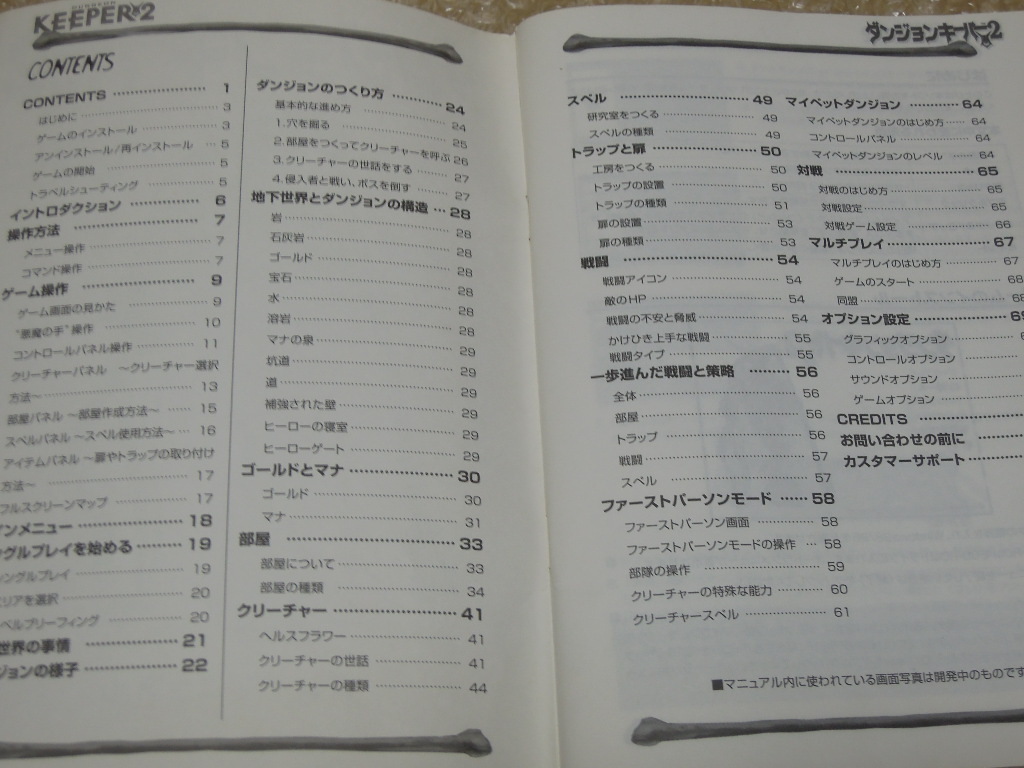 DUNGEON
KEEPER 2
CONTENTS
CONTENTS 1
はじめに 3
ゲームのインストール 3
アンインストール/再インストール 5
ゲームの開始 5
トラベルシューティング 5
イントロダクション 6
操作方法 7
メニュー操作 7
コマンド操作 7
ゲーム操作 9
ゲーム画面の見かた 9
"悪魔の手"操作 10
コントロールパネル操作 11
クリーチャーパネル ～クリーチャー選択
方法～ 13
部屋パネル ～部屋作成方法～ 15
スペルパネル ～スペル使用方法～ 16
アイテムパネル ～扉やトラップの取り付け
方法～ 17
フルスクリーンマップ 17
ンメニュー 18
グルプレイを始める 19
ングルプレイ 19
エリアを選択 20
ベルブリーフィング 20
世界の事情 21
ジョンの様子 22
ダンジョンのつくり方 24
基本的な進め方 24
1.穴を掘る 25
2.部屋をつくってクリーチャーを呼ぶ 26
3.クリーチャーの世話をする 27
4.侵入者と戦い、ボスを倒す 27
地下世界とダンジョンの構造 28
岩 28
石灰岩 28
ゴールド 28
宝石 28
水 28
溶岩 28
マナの泉 29
坑道 29
道 29
補強された壁 29
ヒーローの寝室 29
ヒーローゲート 29
ゴールドとマナ 30
ゴールド 30
マナ 31
部屋 33
部屋について 33
部屋の種類 34
クリーチャー 41
ヘルスフラワー 41
クリーチャーの世話 41
クリーチャーの種類 44
ダンジョンキーパー2
スペル 49
研究室をつくる 49
スペルの種類 49
トラップと扉 50
工房をつくる 50
トラップの設置 50
トラップの種類 51
扉の設置 53
扉の種類 53
戦闘 54
戦闘アイコン 54
敵のHP 54
戦闘の不安と脅威 54
かけひき上手な戦闘 55
戦闘タイプ 55
一歩進んだ戦闘と策略 56
全体 56
部屋 56
トラップ 56
戦闘 57
スペル 57
ファーストパーソンモード 58
ファーストパーソン画面 58
ファーストパーソンモードの操作 58
部隊の操作 59
クリーチャーの特殊な能力 60
クリーチャースペル 61
マイペットダンジョン 64
マイペットダンジョンのはじめ方 64
コントロールパネル 64
マイペットダンジョンのレベル 64
対戦 65
対戦のはじめ方 65
対戦設定 65
対戦ゲーム設定 66
マルチプレイ 67
マルチプレイのはじめ方 67
ゲームのスタート 68
同盟 68
オプション設定 69
グラフィックオプション
コントロールオプション
サウンドオプション
ゲームオプション
CREDITS
お問い合わせの前に
カスタマーサポート
■マニュアル内に使われている画面写真は開発中のものです